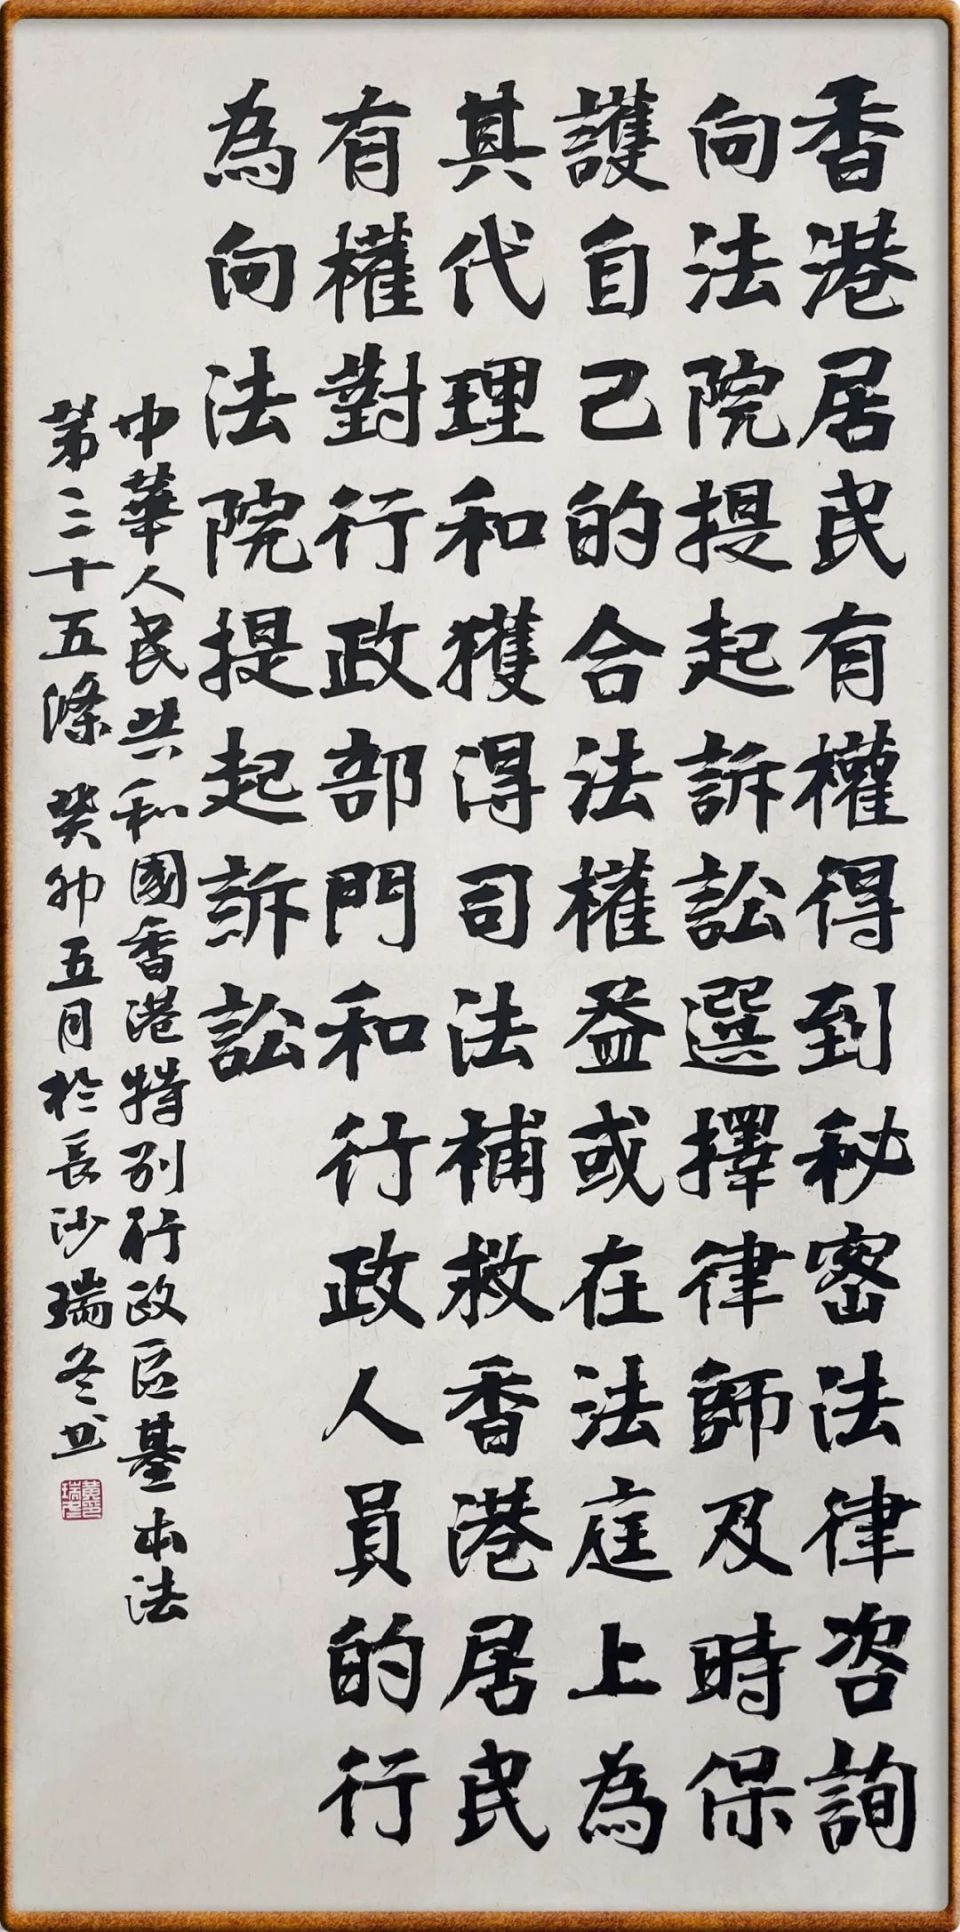 香港居民有權得到秘密法律咨詢
向法院提起訴訟選擇律師及時保
護自己的合法權益或在法庭上為
其代理和獲得司法補救香港居民
有權對行政部門和行政人員的行
為向法院提起訴訟
中華人民共和國香港特別行政區基本法
第三十五條 癸卯五月於長沙瑞冬书
黃印
瑞冬